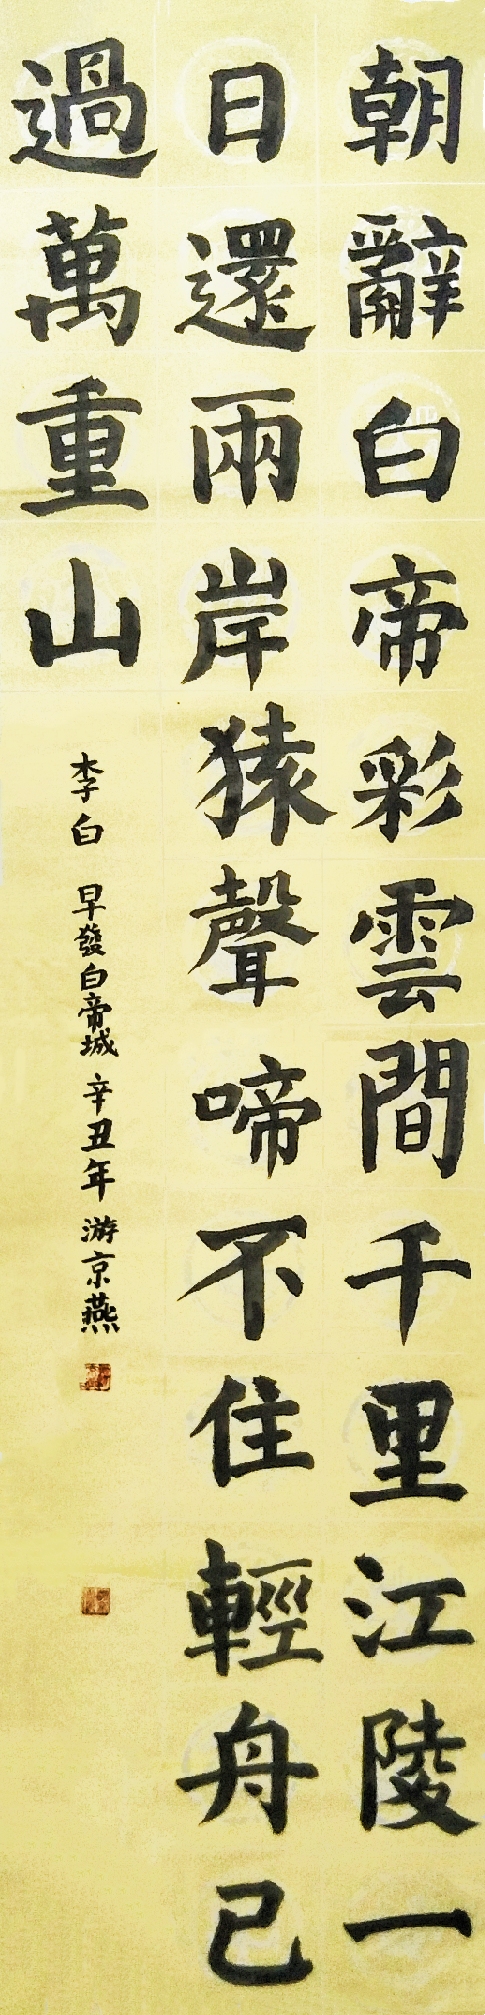 朝辭白帝彩雲間千里江陵一
日還兩岸猿聲啼不住輕舟已
過萬重山
李白 早發白帝城 辛丑年 游京燕